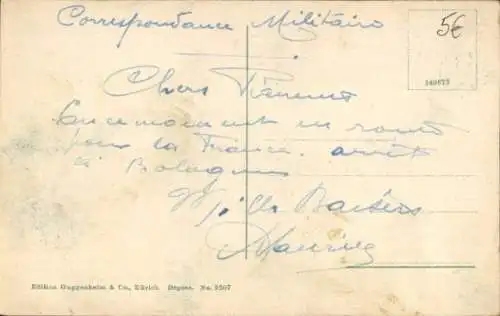 Correspondance Militaire
5€
140673
Chers
en ce moment en route
pour la France. arrêt
à Bologne
Baisers
Maurice
Edition Guggenheim & Co., Zürich. Dépose. No. 9507